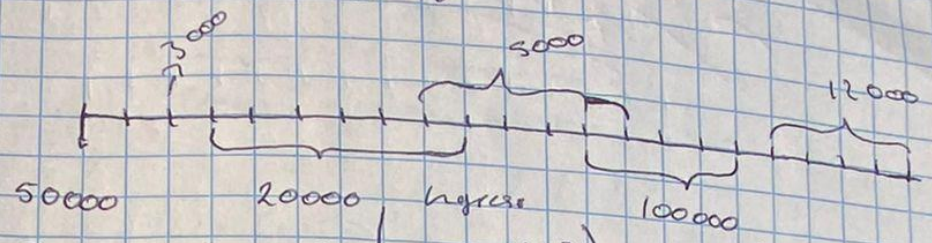 3000
5000
12000
50000 20000 Ingreso 100000